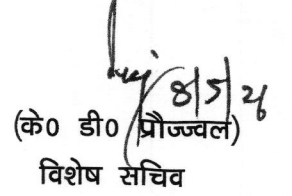 8/5/26
(के0 डी0 प्रौज्ज्वल)
विशेष सचिव